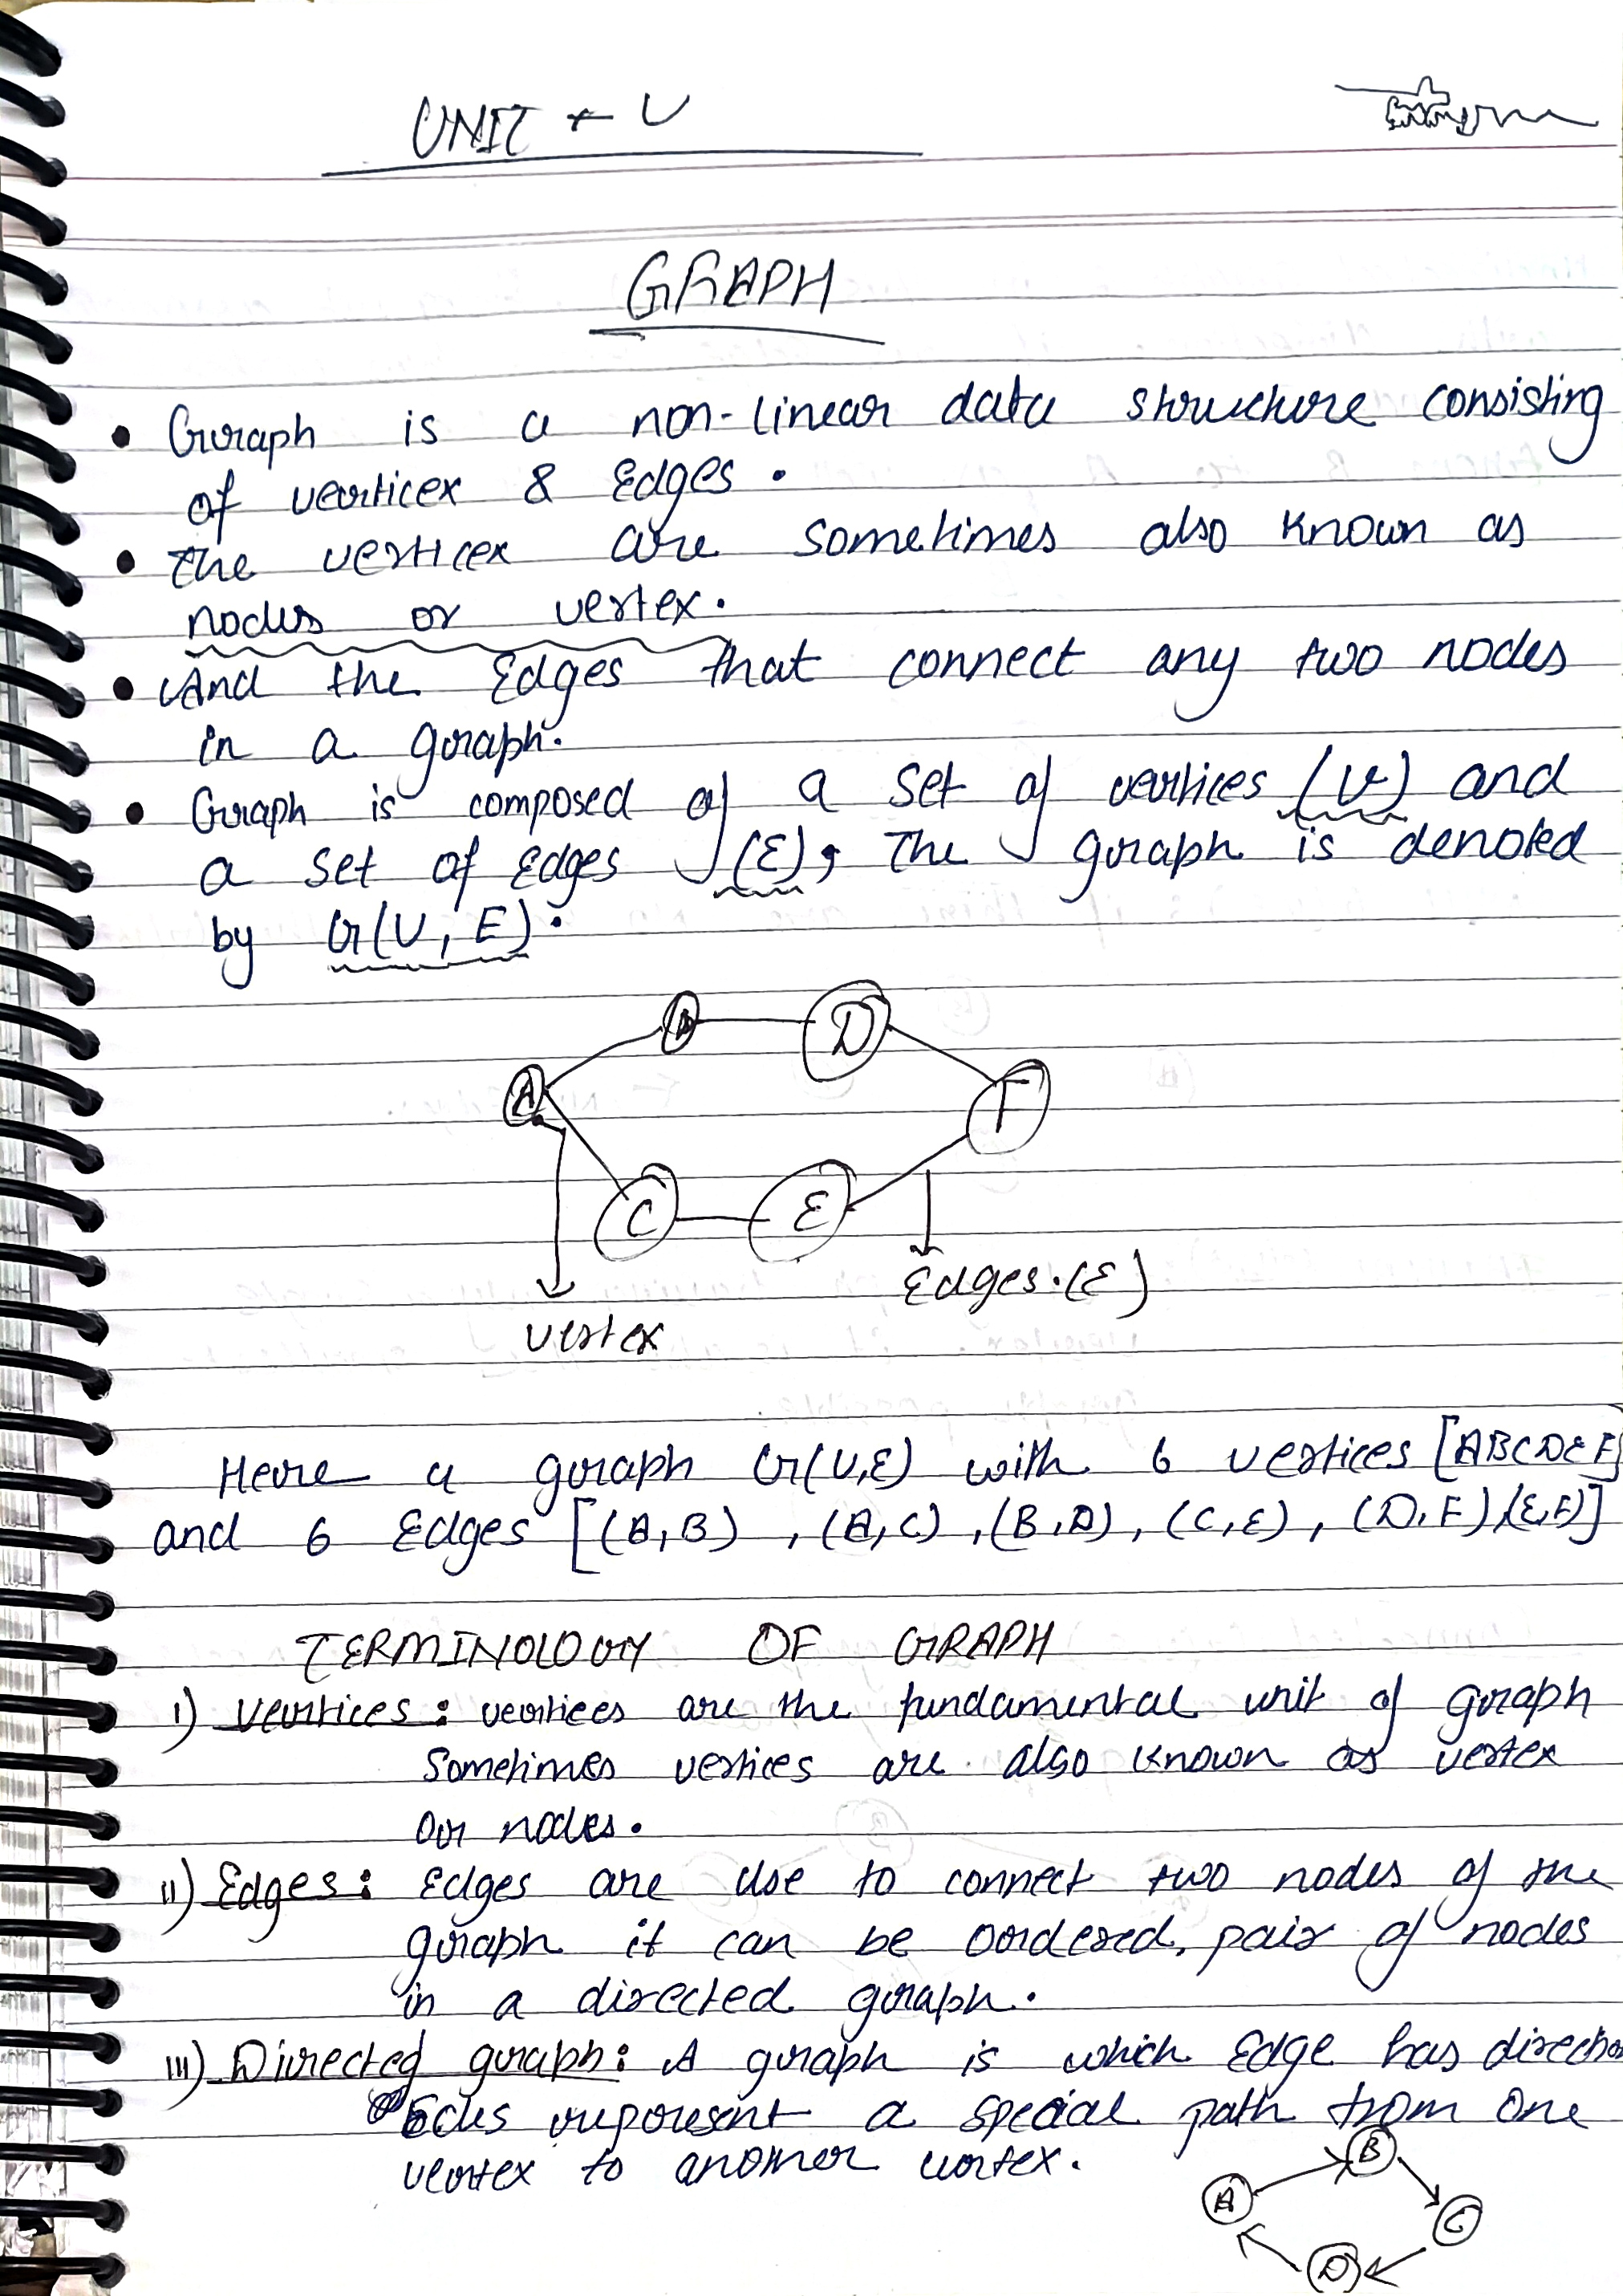 UNIT - V
GRAPH
• Graph is a non-linear data structure consisting
of verticex & Edges.
• The verticex are sometimes also known as
nodes or vertex.
• And the Edges that connect any two nodes
in a graph.
• Graph is composed of a set of vertices (V) and
a set of edges (E), The graph is denoted
by G(V, E).
B D
A F
C E
Edges.(E)
vertex
Here a graph G(V,E) with 6 vertices [ABCDEF]
and 6 Edges [(A,B), (A,C), (B,D), (C,E), (D,F),(E,F)]
TERMINOLOGY OF GRAPH
i) Vertices: vertices are the fundamental unit of graph
Sometimes vertices are also known as vertex
or nodes.
ii) Edges: Edges are use to connect two nodes of the
graph it can be oordered, pair of nodes
in a directed graph.
iii) Directed graph: A graph is which Edge has direction
represent a special path from one
vertex to another vertex.
B
A C
D